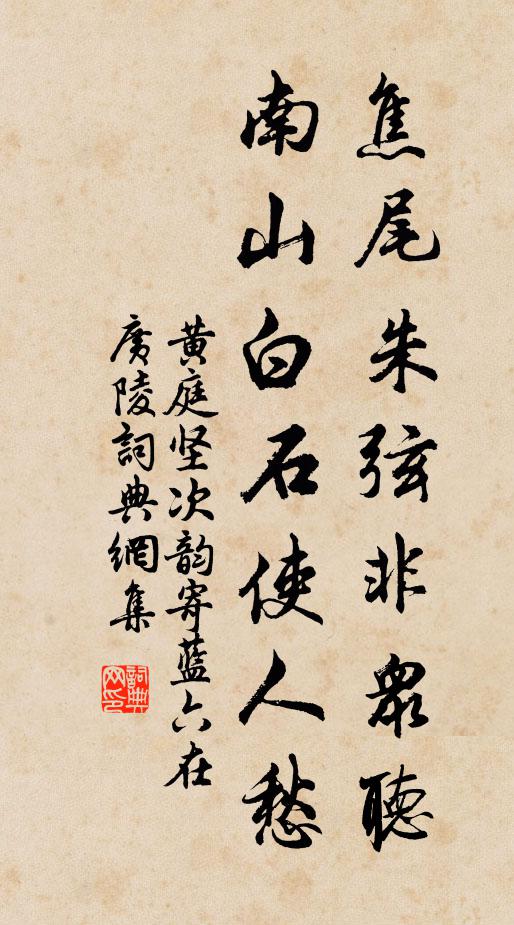 焦尾朱弦非衆聽
南山白石使人愁
黄庭坚次韵寄藍六在
廣陵詞典網集
詞典
网印